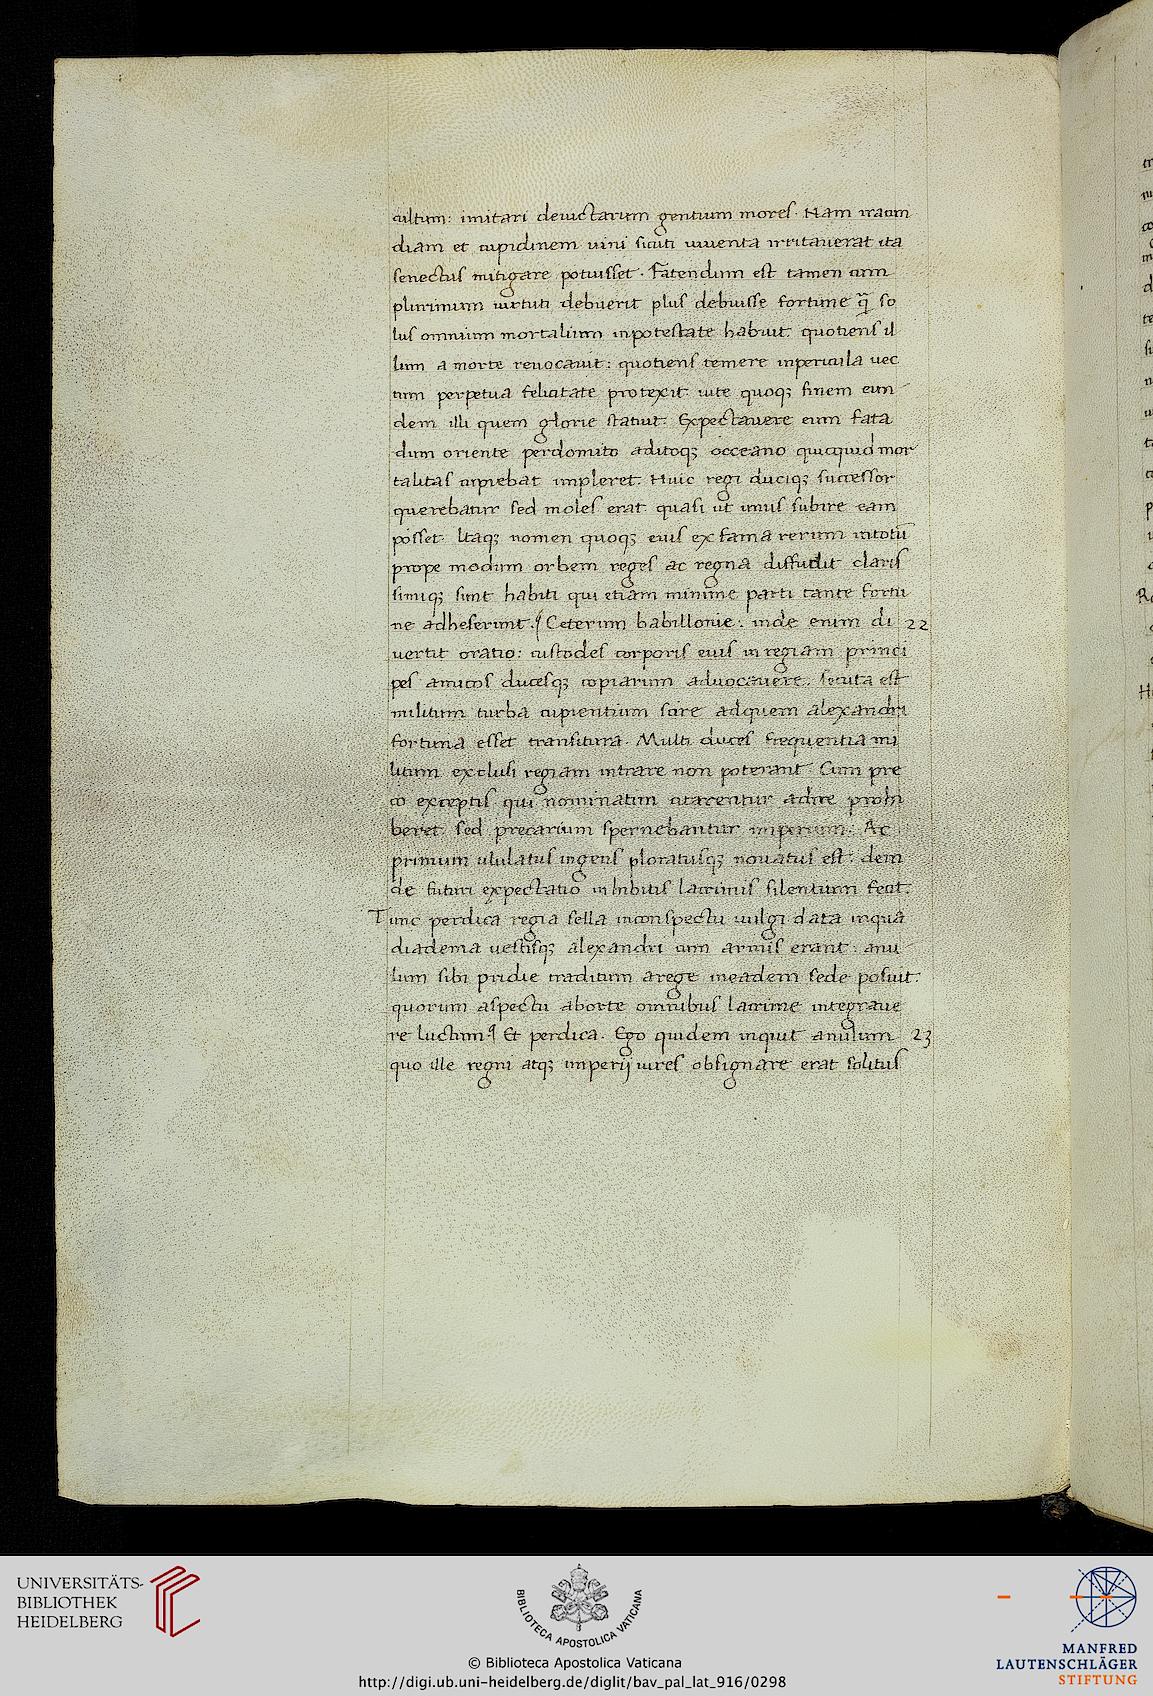 cultum: imitari deuictarum gentium mores. Nam iracun
diam et cupidinem uini sicuti iuuenta irritauerat ita
senectus mitigare potuisset. Fatendum est tamen cum
plurimum uirtuti debuerit plus debuisse fortune q̃ so
lus omnium mortalium inpotestate habuit. quotiens il
lum a morte reuocauit: quotiens temere inpericula uec
tum perpetua felicitate protexit. uite quoq; finem eun
dem illi quem glorie statuit. Expectauere eum fata
dum oriente perdomito aditoq; occeano quicquid mor
talitas capiebat impleret. Huic regi duciq; successor
querebatur sed moles erat quasi ut unus subire eam
posset. Itaq; nomen quoq; eius ex fama rerum intotū
prope modum orbem reges ac regna diffudit claris
simiq; sunt habiti qui etiam minime parti tante fortu
ne adheserunt. Ceterum babillonie: inde enim di 22
uertit oratio: custodes corporis eius in regiam princi
pes amicos ducesq; copiarum aduocauere. secuta est
militum turba cupientium scire adquem alexandri
fortuna esset transitura. Multi duces frequentia mi
litum exclusi regiam intrare non poterant. Cum pre
co exceptis qui nominatim citarentur adire prohi
beret sed precarium spernebantur imperium. Ac
primum ululatus ingens ploratusq; nouatus est: dein
de futuri expectatio inhibitis lacrimis silentium fecit.
Tunc perdica regia sella inconspectu uulgi data inqua
diadema uestisq; alexandri cum armis erant: anu
lum sibi pridie traditum arege ineadem sede posuit.
quorum aspectu aborte omnibus lacrime integraue
re luctum. Et perdica. Ego quidem inquit anulum 23
quo ille regni atq; imperij uires obsignare erat solitus
UNIVERSITÄTS-
BIBLIOTHEK
HEIDELBERG
BIBLIOTECA APOSTOLICA VATICANA
© Biblioteca Apostolica Vaticana
http://digi.ub.uni-heidelberg.de/diglit/bav_pal_lat_916/0298
MANFRED
LAUTENSCHLÄGER
STIFTUNG